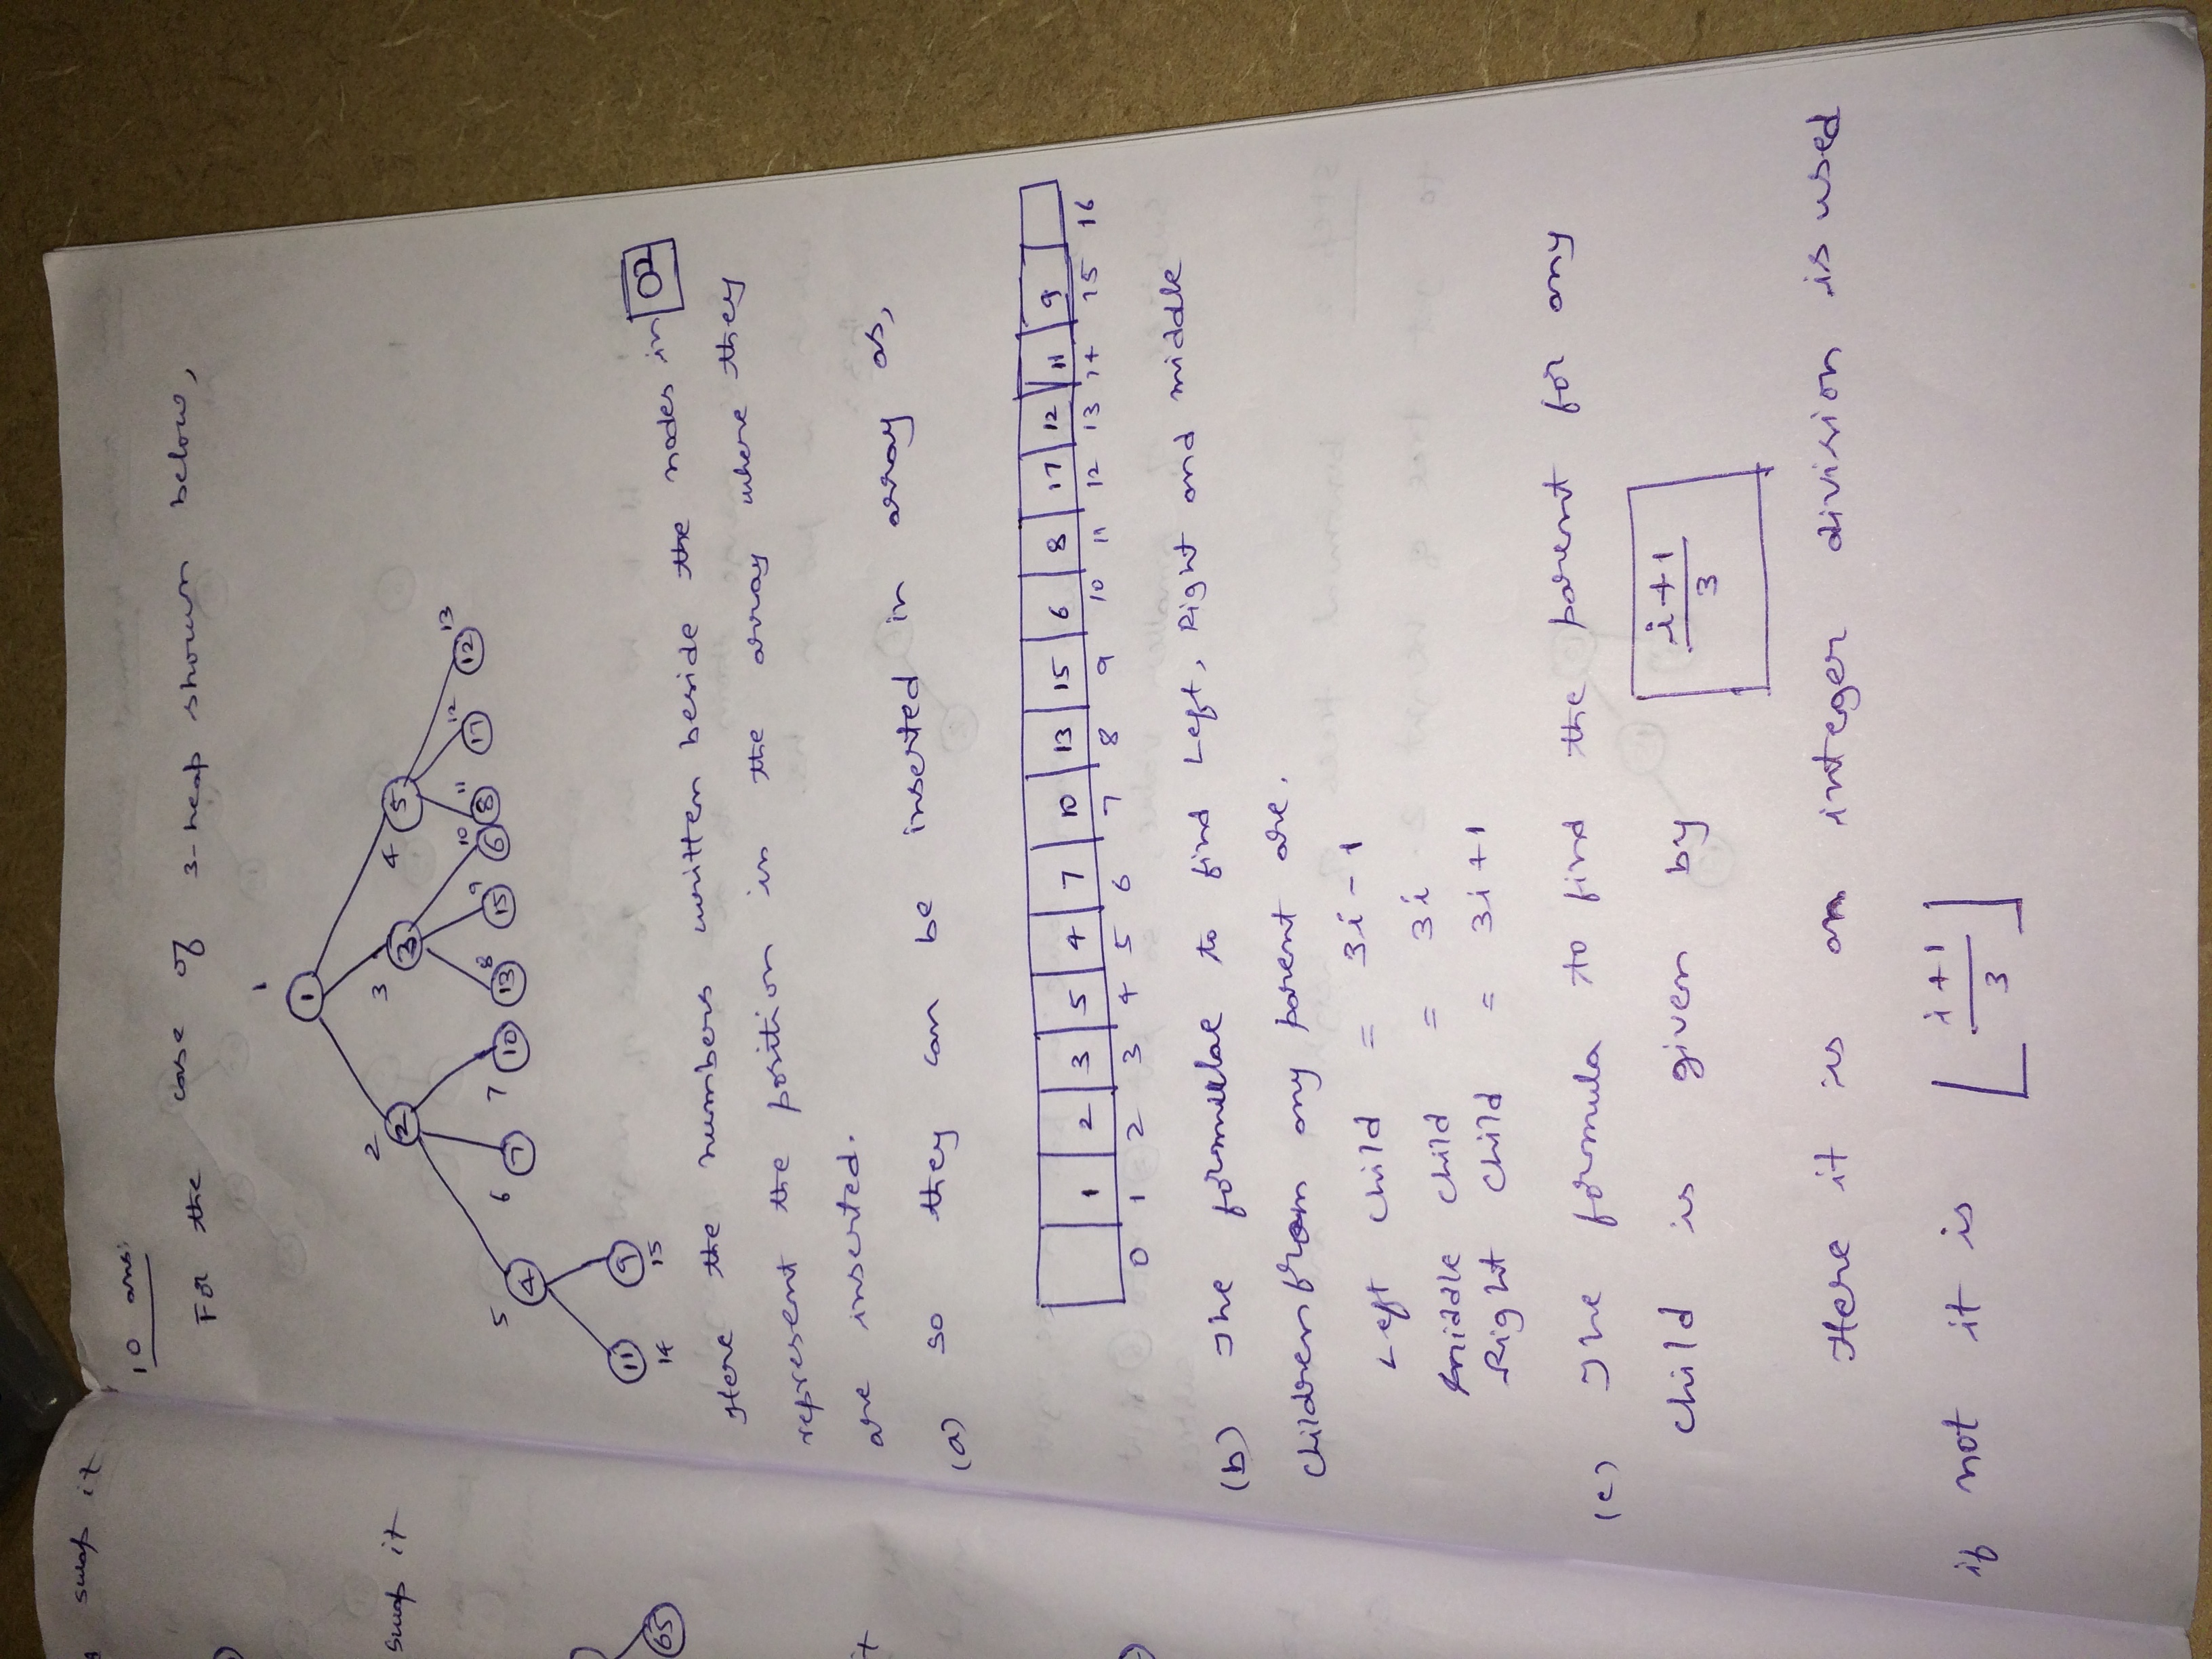 swap it
swap it
65
10 ans:
For the case of 3-heap shown below,
1
1
2 3 4
2 3 5
5 6 7 8 9 10 11 12 13
4 7 10 13 15 6 8 17 12
11 9
14 15
Here the numbers written beside the nodes in 02
represent the position in the array where they
are inserted.
(a) so they can be inserted in array as,
1 2 3 5 4 7 10 13 15 6 8 17 12 11 9
0 1 2 3 4 5 6 7 8 9 10 11 12 13 14 15 16
(b) The formulae to find Left, Right and middle
children from any parent are.
Left child = 3i - 1
middle child = 3i
Right child = 3i + 1
(c) The formula to find the parent for any
child is given by i+1/3
Here it is an integer division is used
if not it is ⌊i+1/3⌋